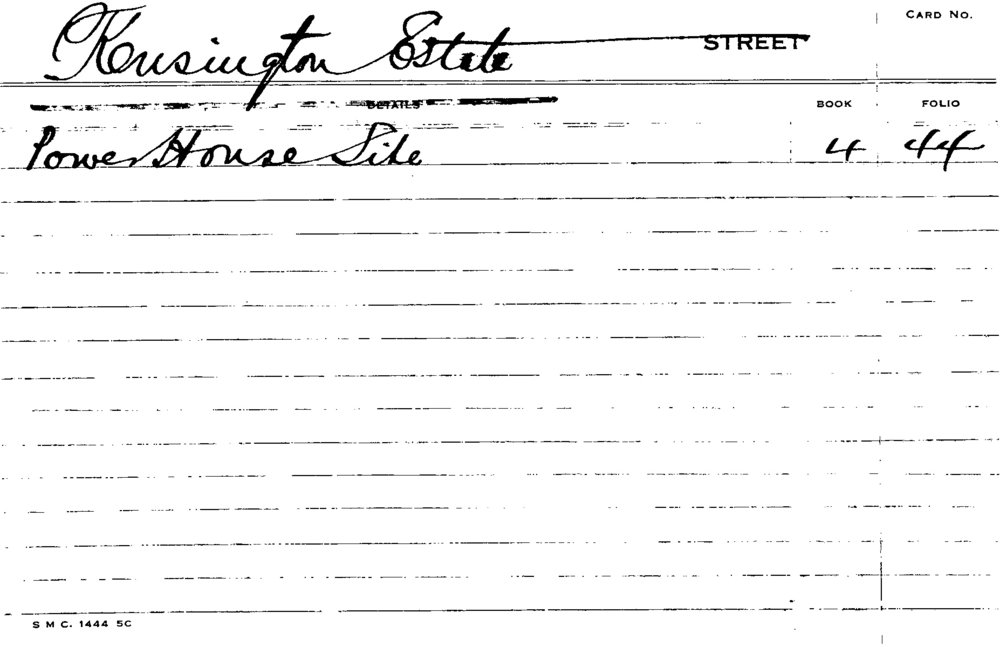 CARD NO.
Kensington Estate STREET
DETAILS BOOK FOLIO
Power House Site 4 44
S M C. 1444 5C